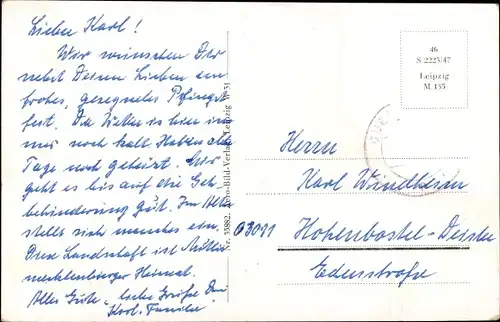 Lieber Karl!
Wir wünschen Dir
nebst Deinen Lieben ein
frohes, gesegnetes Pfingst
fest. Da
nur noch kalt. Haben alle
Tage noch geheizt. Mir
geht es bis auf die Geh-
behinderung gut. Im Alter
stellt sich manches ein.
Diese Landschaft ist Mutter
mecklenburger Heimat.
Alles Gute, herzliche Grüße Dein
Karl. Familie
Nr. 55882. -Bild-Verlag, Leipzig W 31
46
S 2225/47
Leipzig
M 135
Herrn
Karl Windheim
03091
Hohenbostel-Deister